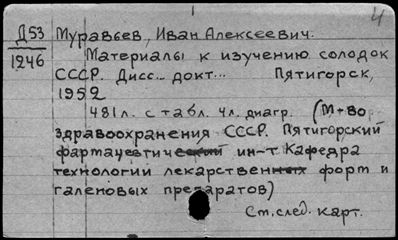 4
Д53 Муравьев, Иван Алексеевич.
1246 Материалы к изучению солодок
СССР. Дисс... докт... Пятигорск,
1952
481л. с табл. 4л. диагр. (М-во
здравоохранения СССР. Пятигорский
фармацевтический ин-т Кафедра
технологии лекарственных форм и
галеновых препаратов)
См. след. карт.